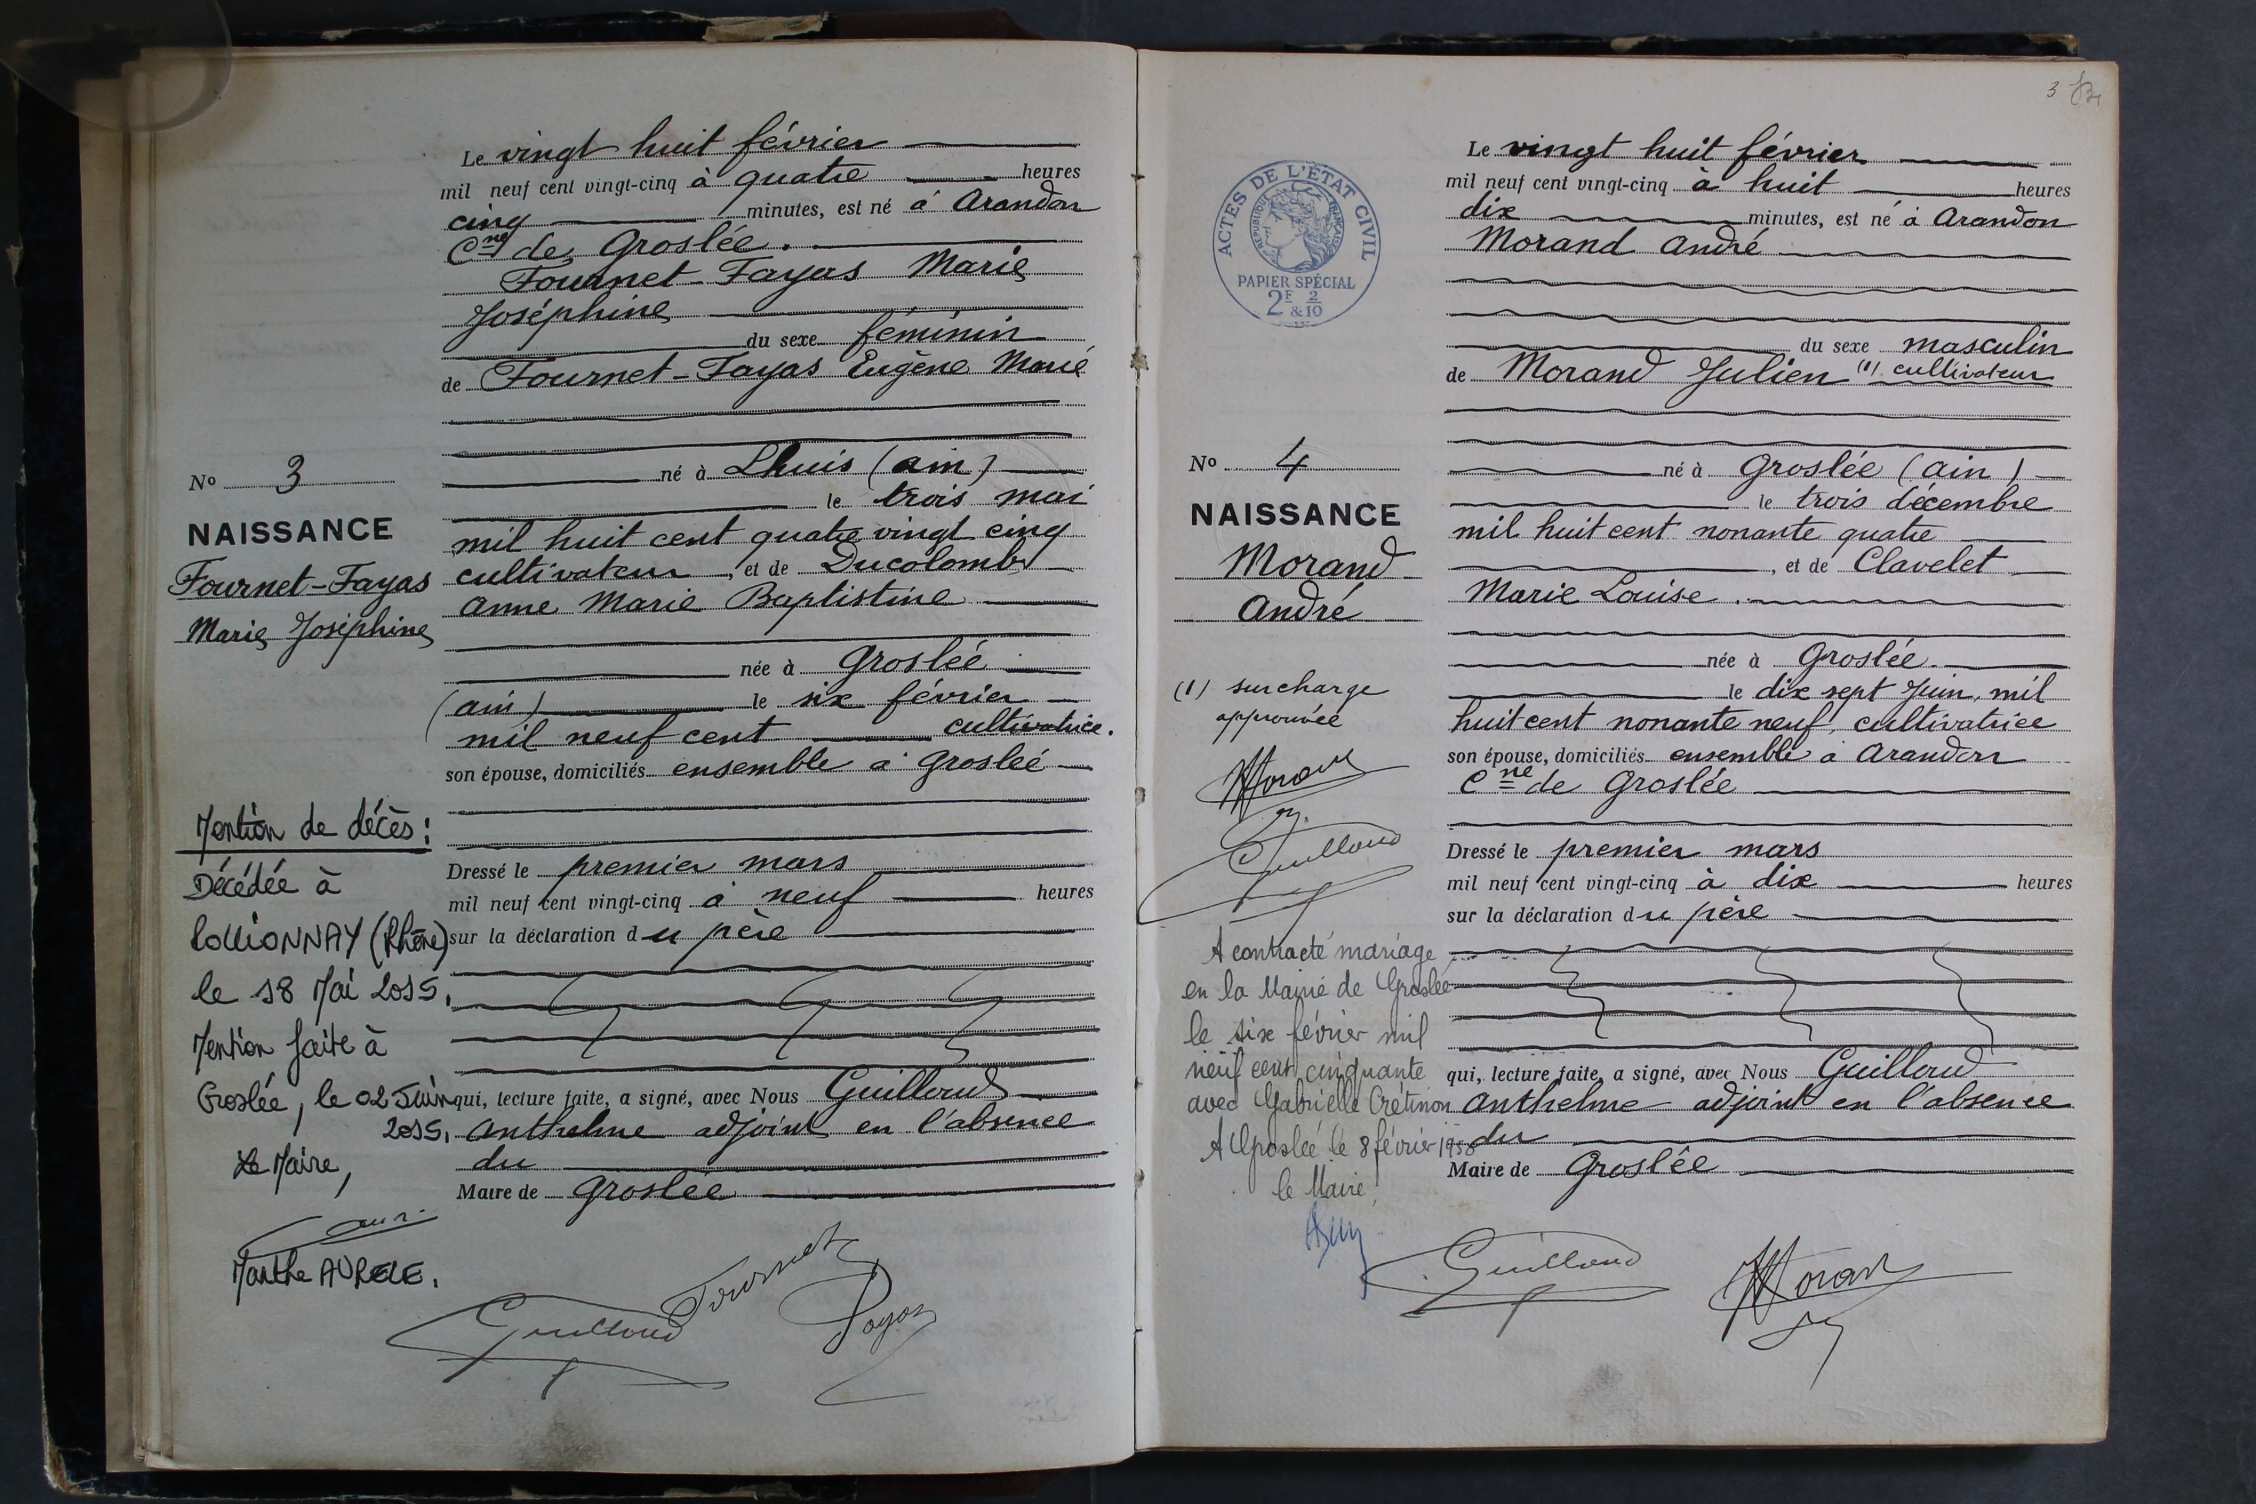 Le vingt huit février
mil neuf cent vingt-cinq à quatre heures
cinq minutes, est né à Arandon
Cne de Groslée.
Fournet-Fayas Marie
Joséphine
du sexe féminin
de Fournet-Fayas Eugène Marie
né à Lhuis (ain)
le trois mai
mil huit cent quatre vingt cinq
cultivateur, et de Ducolomb
Anne Marie Baptistine
née à Groslée
(ain) le six février
mil neuf cent cultivatrice.
son épouse, domiciliés ensemble à Groslée
Dressé le premier mars
mil neuf cent vingt-cinq à neuf heures
sur la déclaration du père
qui, lecture faite, a signé, avec Nous Guilloud
Anthelme adjoint en l'absence
du
Maire de Groslée
Guilloud
Fournet
Fayas
No 3
NAISSANCE
Fournet-Fayas
Marie Joséphine
Mention de décès:
Décédée à
POLLIONNAY (Rhône)
le 18 Mai 2015.
Mention faite à
Groslée, le 02 Juin
2015.
Le Maire,
Marthe AURELE.
3
ACTES DE L'ÉTAT CIVIL
RÉPUBLIQUE FRANÇAISE
PAPIER SPÉCIAL
2F & 2/10
Le vingt huit février
mil neuf cent vingt-cinq à huit heures
dix minutes, est né à Arandon
Morand André
du sexe masculin
de Morand Julien (1) cultivateur
né à Groslée (ain)
le trois décembre
mil huit cent nonante quatre
, et de Clavelet
Marie Louise.
née à Groslée.
le dix sept Juin, mil
huit cent nonante neuf, cultivatrice
son épouse, domiciliés ensemble à Arandon
Cne de Groslée
Dressé le premier mars
mil neuf cent vingt-cinq à dix heures
sur la déclaration du père
qui, lecture faite, a signé, avec Nous Guilloud
Anthelme adjoint en l'absence
du
Maire de Groslée
Guilloud
Morand
No 4
NAISSANCE
Morand
André
(1) surcharge
approuvée
Morand
Guilloud
A contracté mariage
en la Mairie de Groslée
le six février mil
neuf cent cinquante
avec Gabrielle Crétinon
A Groslée le 8 février 1950
le Maire,